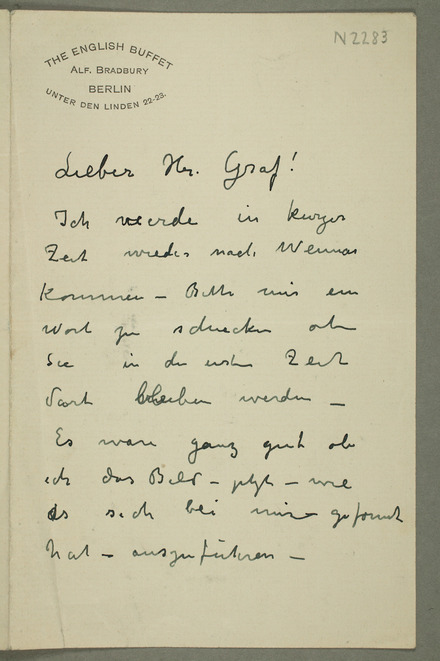 N2283
THE ENGLISH BUFFET
ALF. BRADBURY
BERLIN
UNTER DEN LINDEN 22-23.
Lieber Hr. Graf!
Ich werde in kurzer
Zeit wieder nach Weimar
kommen – Bitte mir ein
Wort zu schicken ob
Sie in der ersten Zeit
dort bleiben werden –
Es wäre ganz gut ob
ich das Bild – jetzt – wie
es sich bei mir geformt
hat – auszuführen –